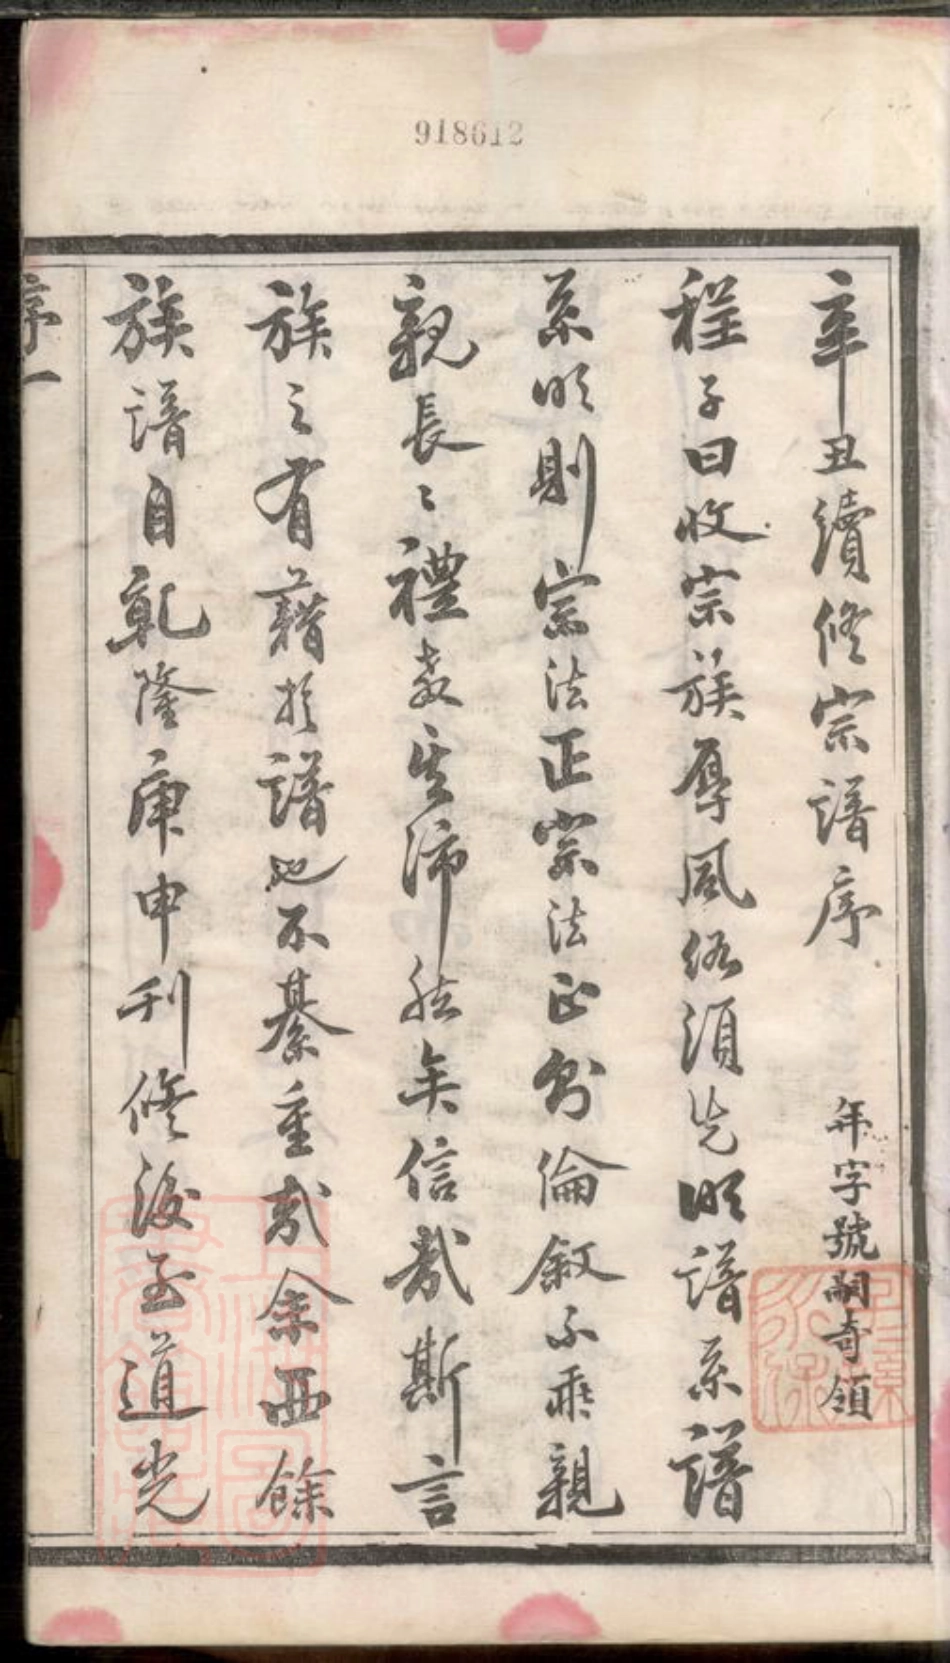 918612
辛丑續修宗譜序
年字號嗣奇領
程子曰收宗族厚風俗須先明譜系譜
系明則宗法正宗法正則倫敘不乖親
親長〻禮教生沛然矣信哉斯言
族之有藉於譜也不綦重哉余西餘
族譜自乾隆庚申刊修後至道光
序一